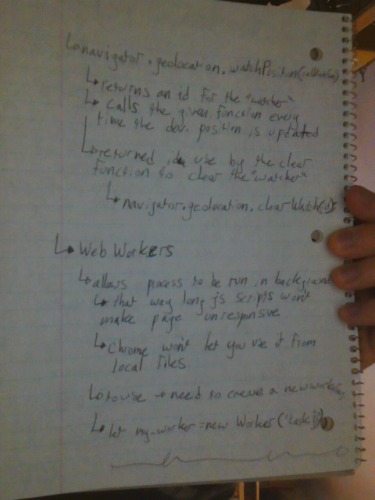 ↳navigator.geolocation.watchPosition(
↳returns an id for the "watcher"
↳calls the given function every
time the dev. position is updated
↳returned id use by the clear
function to clear the "watcher"
↳navigator.geolocation.clearWatch(id)
↳Web Workers
↳allows process to be run in background
↳that way long js scripts won't
make page unresponsive
↳Chrome won't let you use it from
local files
↳to use → need to create a new worker
↳let my-worker = new Worker('task.js')